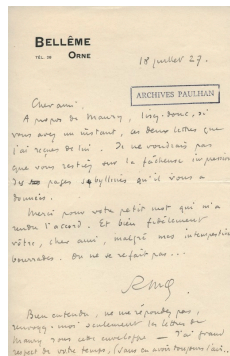 BELLÊME
TÉL. 28 ORNE
18 juillet 27.
ARCHIVES PAULHAN
Cher ami,
A propos de Maury, lisez-donc, si
vous avez un instant, ces deux lettres que
j'ai reçues de lui. Je ne voudrais pas
que vous restiez sur la fâcheuse impression
des pages sybillines qu'il vous a
données.
Merci pour votre petit mot qui m'a
rendu l'accord. Et bien fidèlement
vôtre, cher ami, malgré mes intempestives
bourrades. On ne se refait pas...
RMG
Bien entendu, ne me répondez pas,
renvoyez-moi seulement les lettres de
Maury sous cette enveloppe — J'ai grand
respect de votre temps, (sans en avoir toujours l'air..